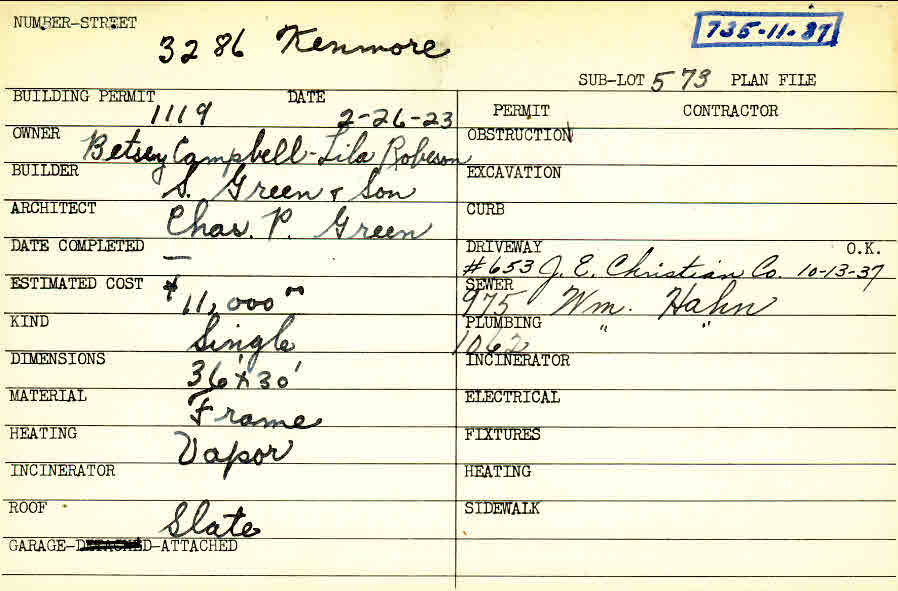 NUMBER-STREET 3286 Kenmore 735-11-37
SUB-LOT 573 PLAN FILE
BUILDING PERMIT 1119 DATE 2-26-23
OWNER Betsey Campbell-Lila Robeson
BUILDER S. Green & Son
ARCHITECT Chas. P. Green
DATE COMPLETED —
ESTIMATED COST $11,000 00
KIND Single
DIMENSIONS 36' x 30'
MATERIAL Frame
HEATING Vapor
INCINERATOR
ROOF Slate
GARAGE-DETACHED-ATTACHED
PERMIT CONTRACTOR
OBSTRUCTION
EXCAVATION
CURB
DRIVEWAY O.K.
#653 J. E. Christian Co. 10-13-37
SEWER
975 Wm. Hahn
PLUMBING " "
1062
INCINERATOR
ELECTRICAL
FIXTURES
HEATING
SIDEWALK